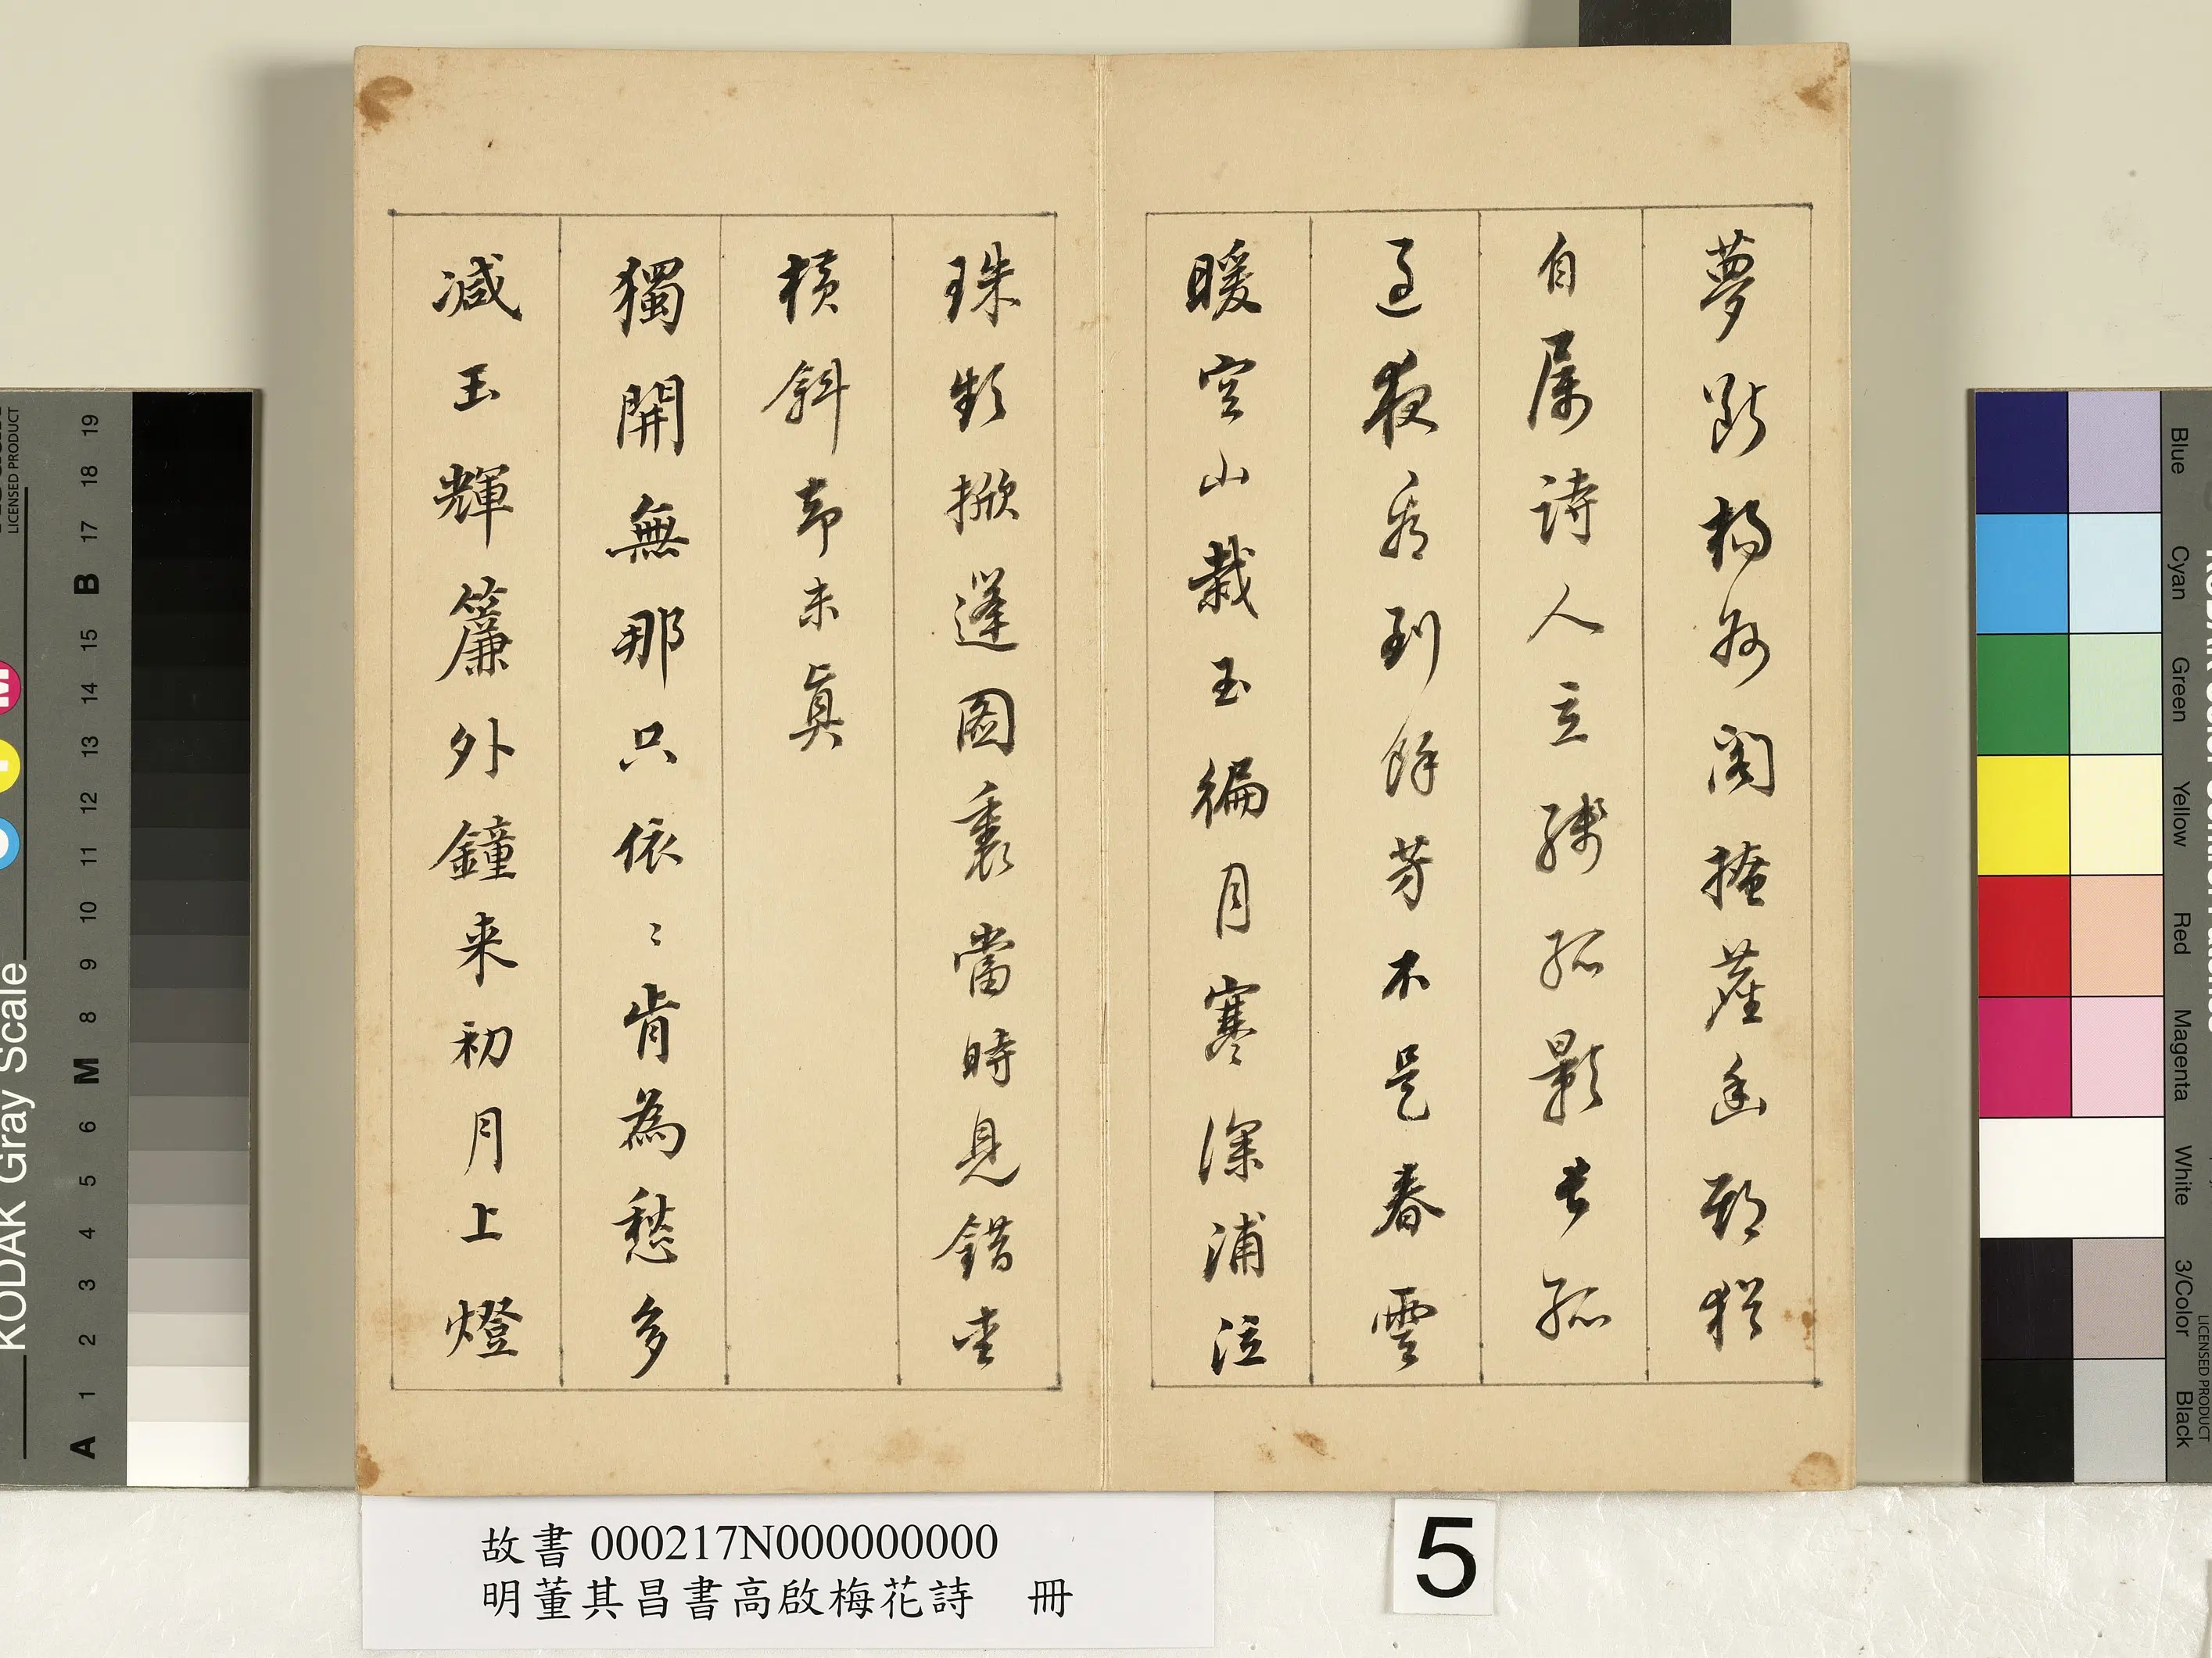 夢斷揚州閣掩塵幽期猶
自屬詩人立殘孤影長孤
過夜看到餘芳不是春雲
暖空山栽玉徧月寒深浦泣
珠頻掀篷圖裏當時見錯
橫斜却未真
獨開無那只依〻肯為愁多
減玉輝簾外鐘来初月上燈
故書 000217N000000000
明董其昌書高啟梅花詩 冊
5
KODAK Gray Scale
LICENSED PRODUCT
A 1 2 3 4 5 6 M 8 9 10 11 12 13 14 15 B 17 18 19
Blue
Cyan
Green
Yellow
Red
Magenta
White
3/Color
Black
LICENSED PRODUCT